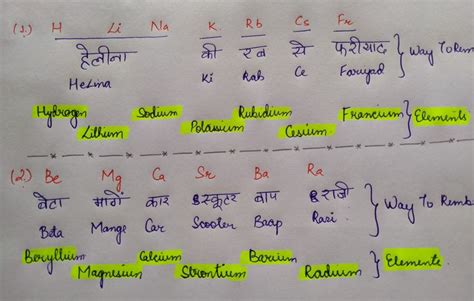 (1.) H Li Na K. Rb Cs Fr
हेलीना की रब से फरीयाद } Way To Rem
Helina Ki Rab Ce Faryad
Hydrogen Lithium Sodium Potassium Rubidium Cesium Francium } Elements
(2.) Be Mg Ca Sr Ba Ra
बेटा मांगे कार स्कूटर बाप राजी } Way To Remb
Beta Mange Car Scooter Baap Razi
Beryllium Magnesium Calcium Strontium Barium Radium } Elements